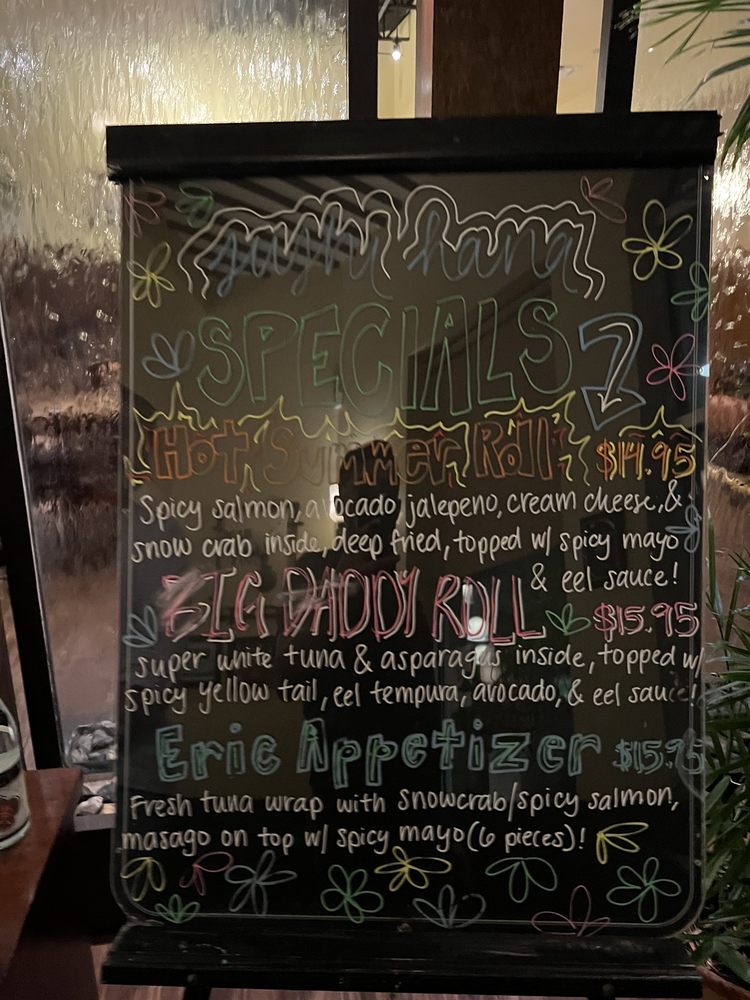 sushi hana
SPECIALS
Hot Summer Roll $14.95
Spicy salmon, avocado jalepeno, cream cheese, &
snow crab inside, deep fried, topped w/ spicy mayo
& eel sauce!
BIG DADDY ROLL $15.95
super white tuna & asparagus inside, topped w/
spicy yellow tail, eel tempura, avocado, & eel sauce!
Eric Appetizer $15.95
Fresh tuna wrap with snowcrab/spicy salmon,
masago on top w/ spicy mayo (6 pieces)!